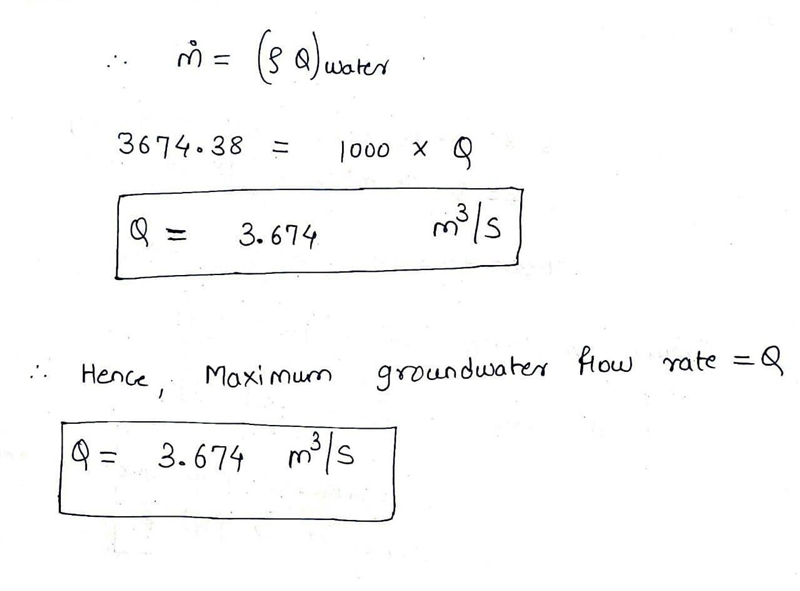 ∴ ṁ = (ρ Q)water
3674.38 = 1000 × Q
Q = 3.674 m³/s
∴ Hence, Maximum groundwater flow rate = Q
Q = 3.674 m³/s